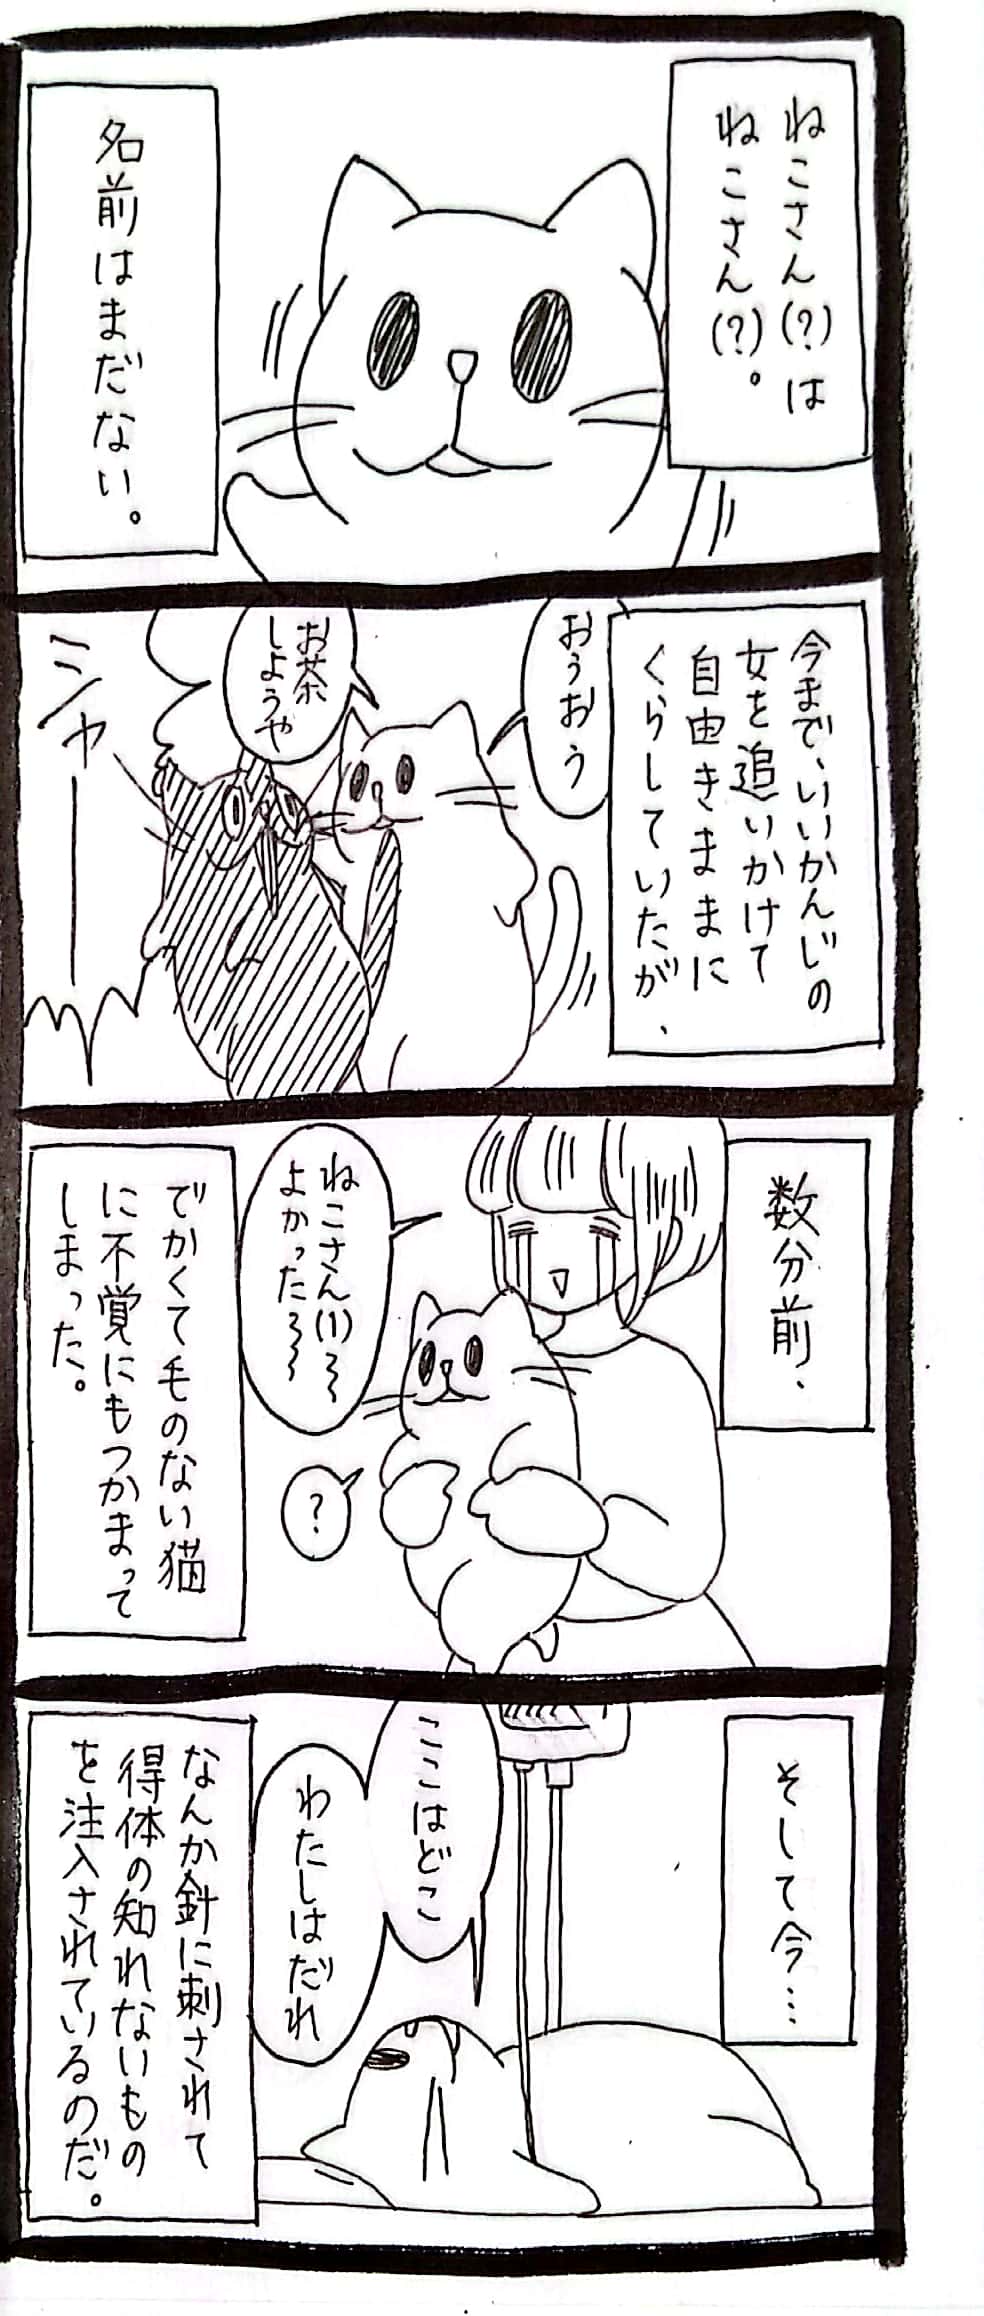 ねこさん(?)は
ねこさん(?)。
名前はまだない。
今まで、いいかんじの
女を追いかけて
自由きままに
くらしていたが、
おうおう
お茶
しようや
シャー
数分前、
ねこさん(1)〜
よかったろ〜〜
?
でかくて毛のない猫
に不覚にもつかまって
しまった。
そして今…
ここはどこ
わたしはだれ
なんか針に刺されて
得体の知れないもの
を注入されているのだ。